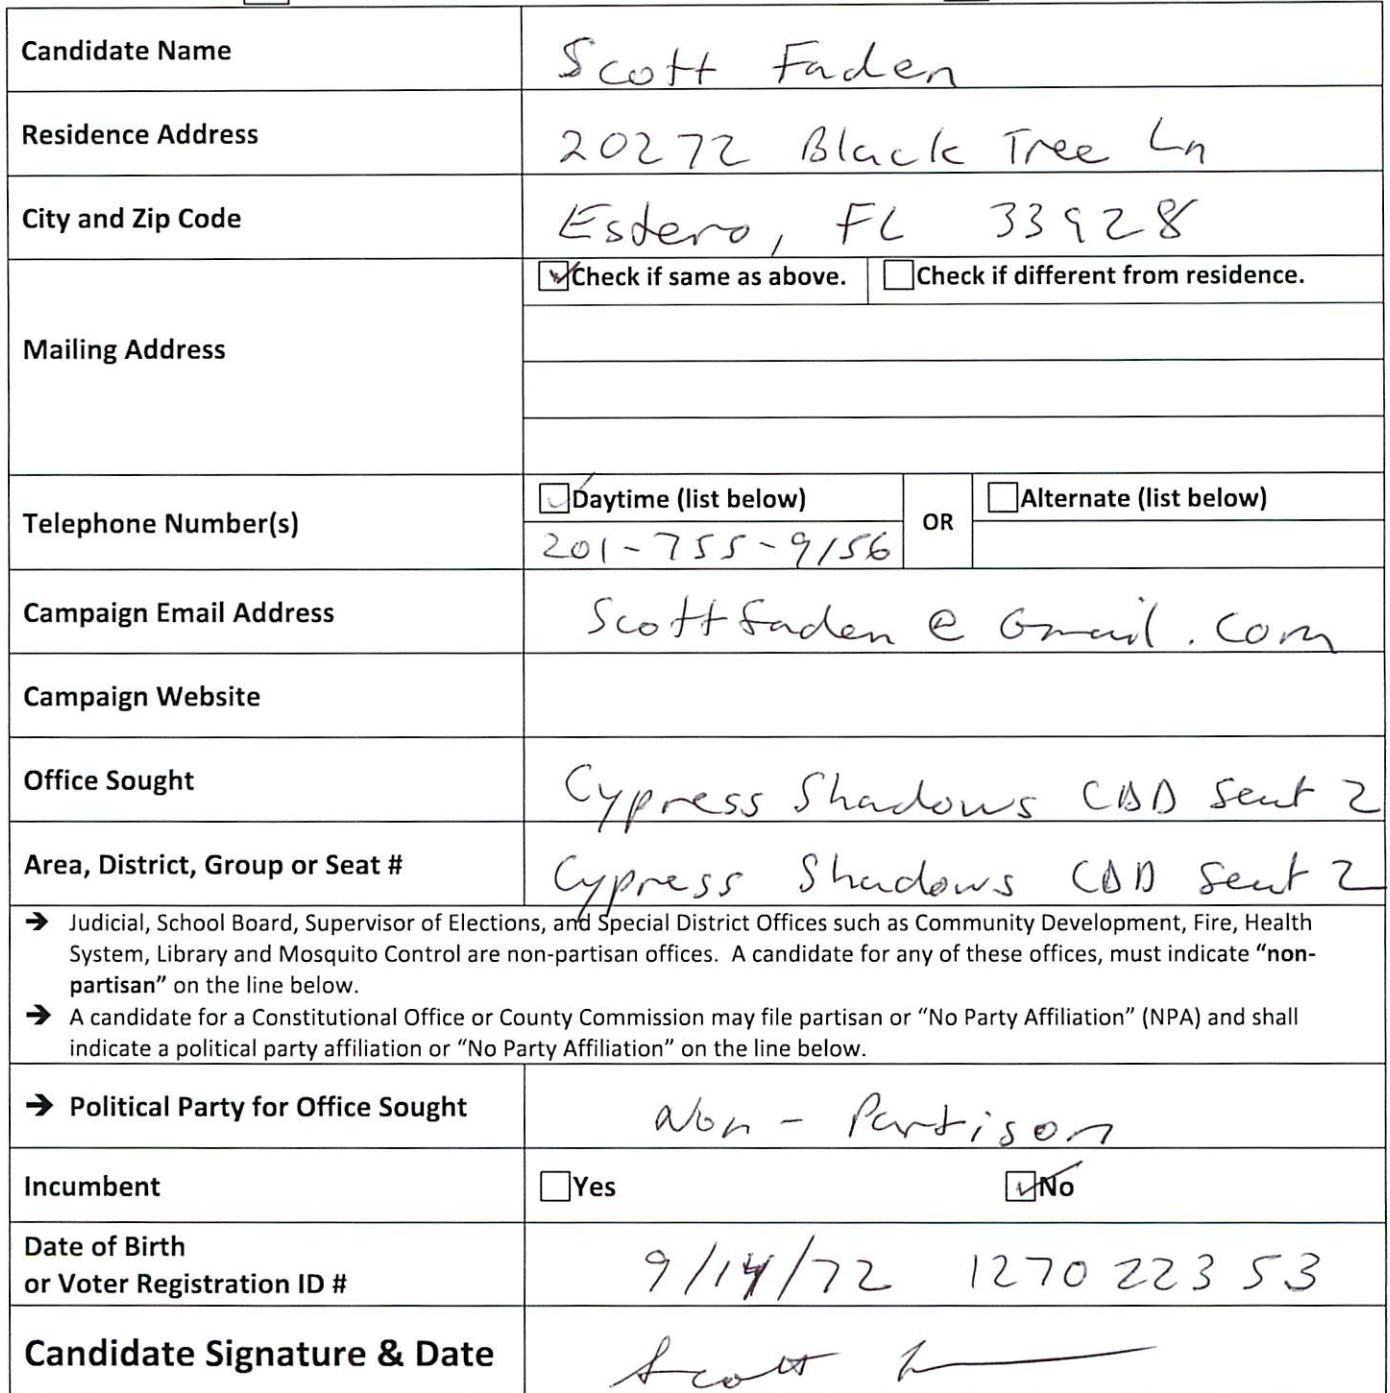 Candidate Name Scott Faden
Residence Address 20272 Black Tree Ln
City and Zip Code Estero, FL 33928
Check if same as above. Check if different from residence.
Mailing Address
Daytime (list below) OR Alternate (list below)
Telephone Number(s)
201-755-9156
Campaign Email Address Scottfaden@Gmail.com
Campaign Website
Office Sought Cypress Shadows CDD Seat 2
Area, District, Group or Seat # Cypress Shadows CDD Seat 2
➔ Judicial, School Board, Supervisor of Elections, and Special District Offices such as Community Development, Fire, Health
System, Library and Mosquito Control are non-partisan offices. A candidate for any of these offices, must indicate “non-
partisan” on the line below.
➔ A candidate for a Constitutional Office or County Commission may file partisan or “No Party Affiliation” (NPA) and shall
indicate a political party affiliation or “No Party Affiliation” on the line below.
➔ Political Party for Office Sought Non - Partison
Incumbent Yes No
Date of Birth
or Voter Registration ID # 9/14/72 127022353
Candidate Signature & Date Scott